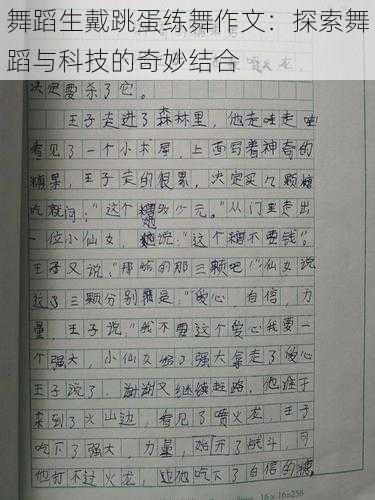 舞蹈生戴跳蛋练舞作文：探索舞
蹈与科技的奇妙结合
决定要杀了它。
王子走进了森林里，他走
看见了一个小木屋，上面写着神奇的
糖果，王子走的很累，决定买几颗糖
吃就问："这个糖多少元。"从门里走出
一位小仙女，她说："这个糖不要钱"。
王子又说："那给的那三颗吧"仙女说
这了三颗分别是："爱心，自信，力
量，王子说"我不要这个爱心我要一
个强大，小仙女给了强大拿走了爱心
王子说了，谢谢又继续赶路，他终于
来到了火山边，看见了喷火龙，王子
吃下了强大，力量，始开了战斗，可
他打不过火龙，边他吃下了自信的糖
16×16=256